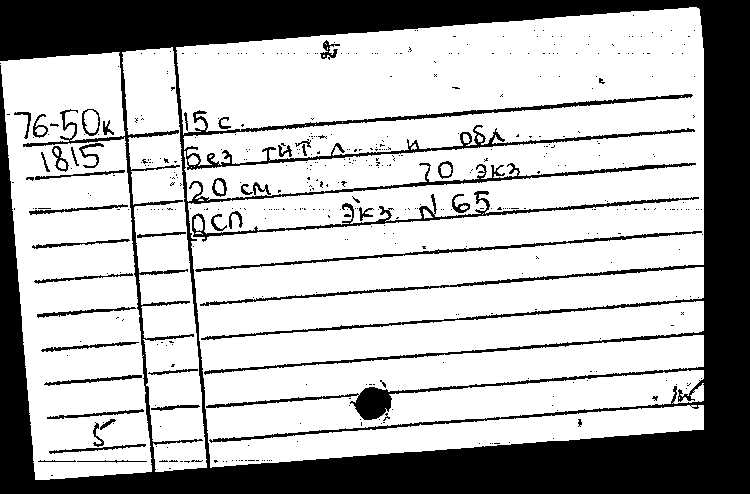 76-50к 15 с.
1815 Без тит. л. и обл.
20 см. 70 экз.
ДСП. экз. N 65.
5